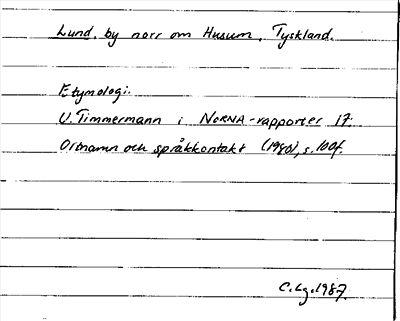 Lund, by norr om Husum, Tyskland.
Etymologi:
U. Timmermann i NORNA-rapporter 17.
Ortnamn och språkkontakt (1980), s. 100f.
C.Lg. 1987.